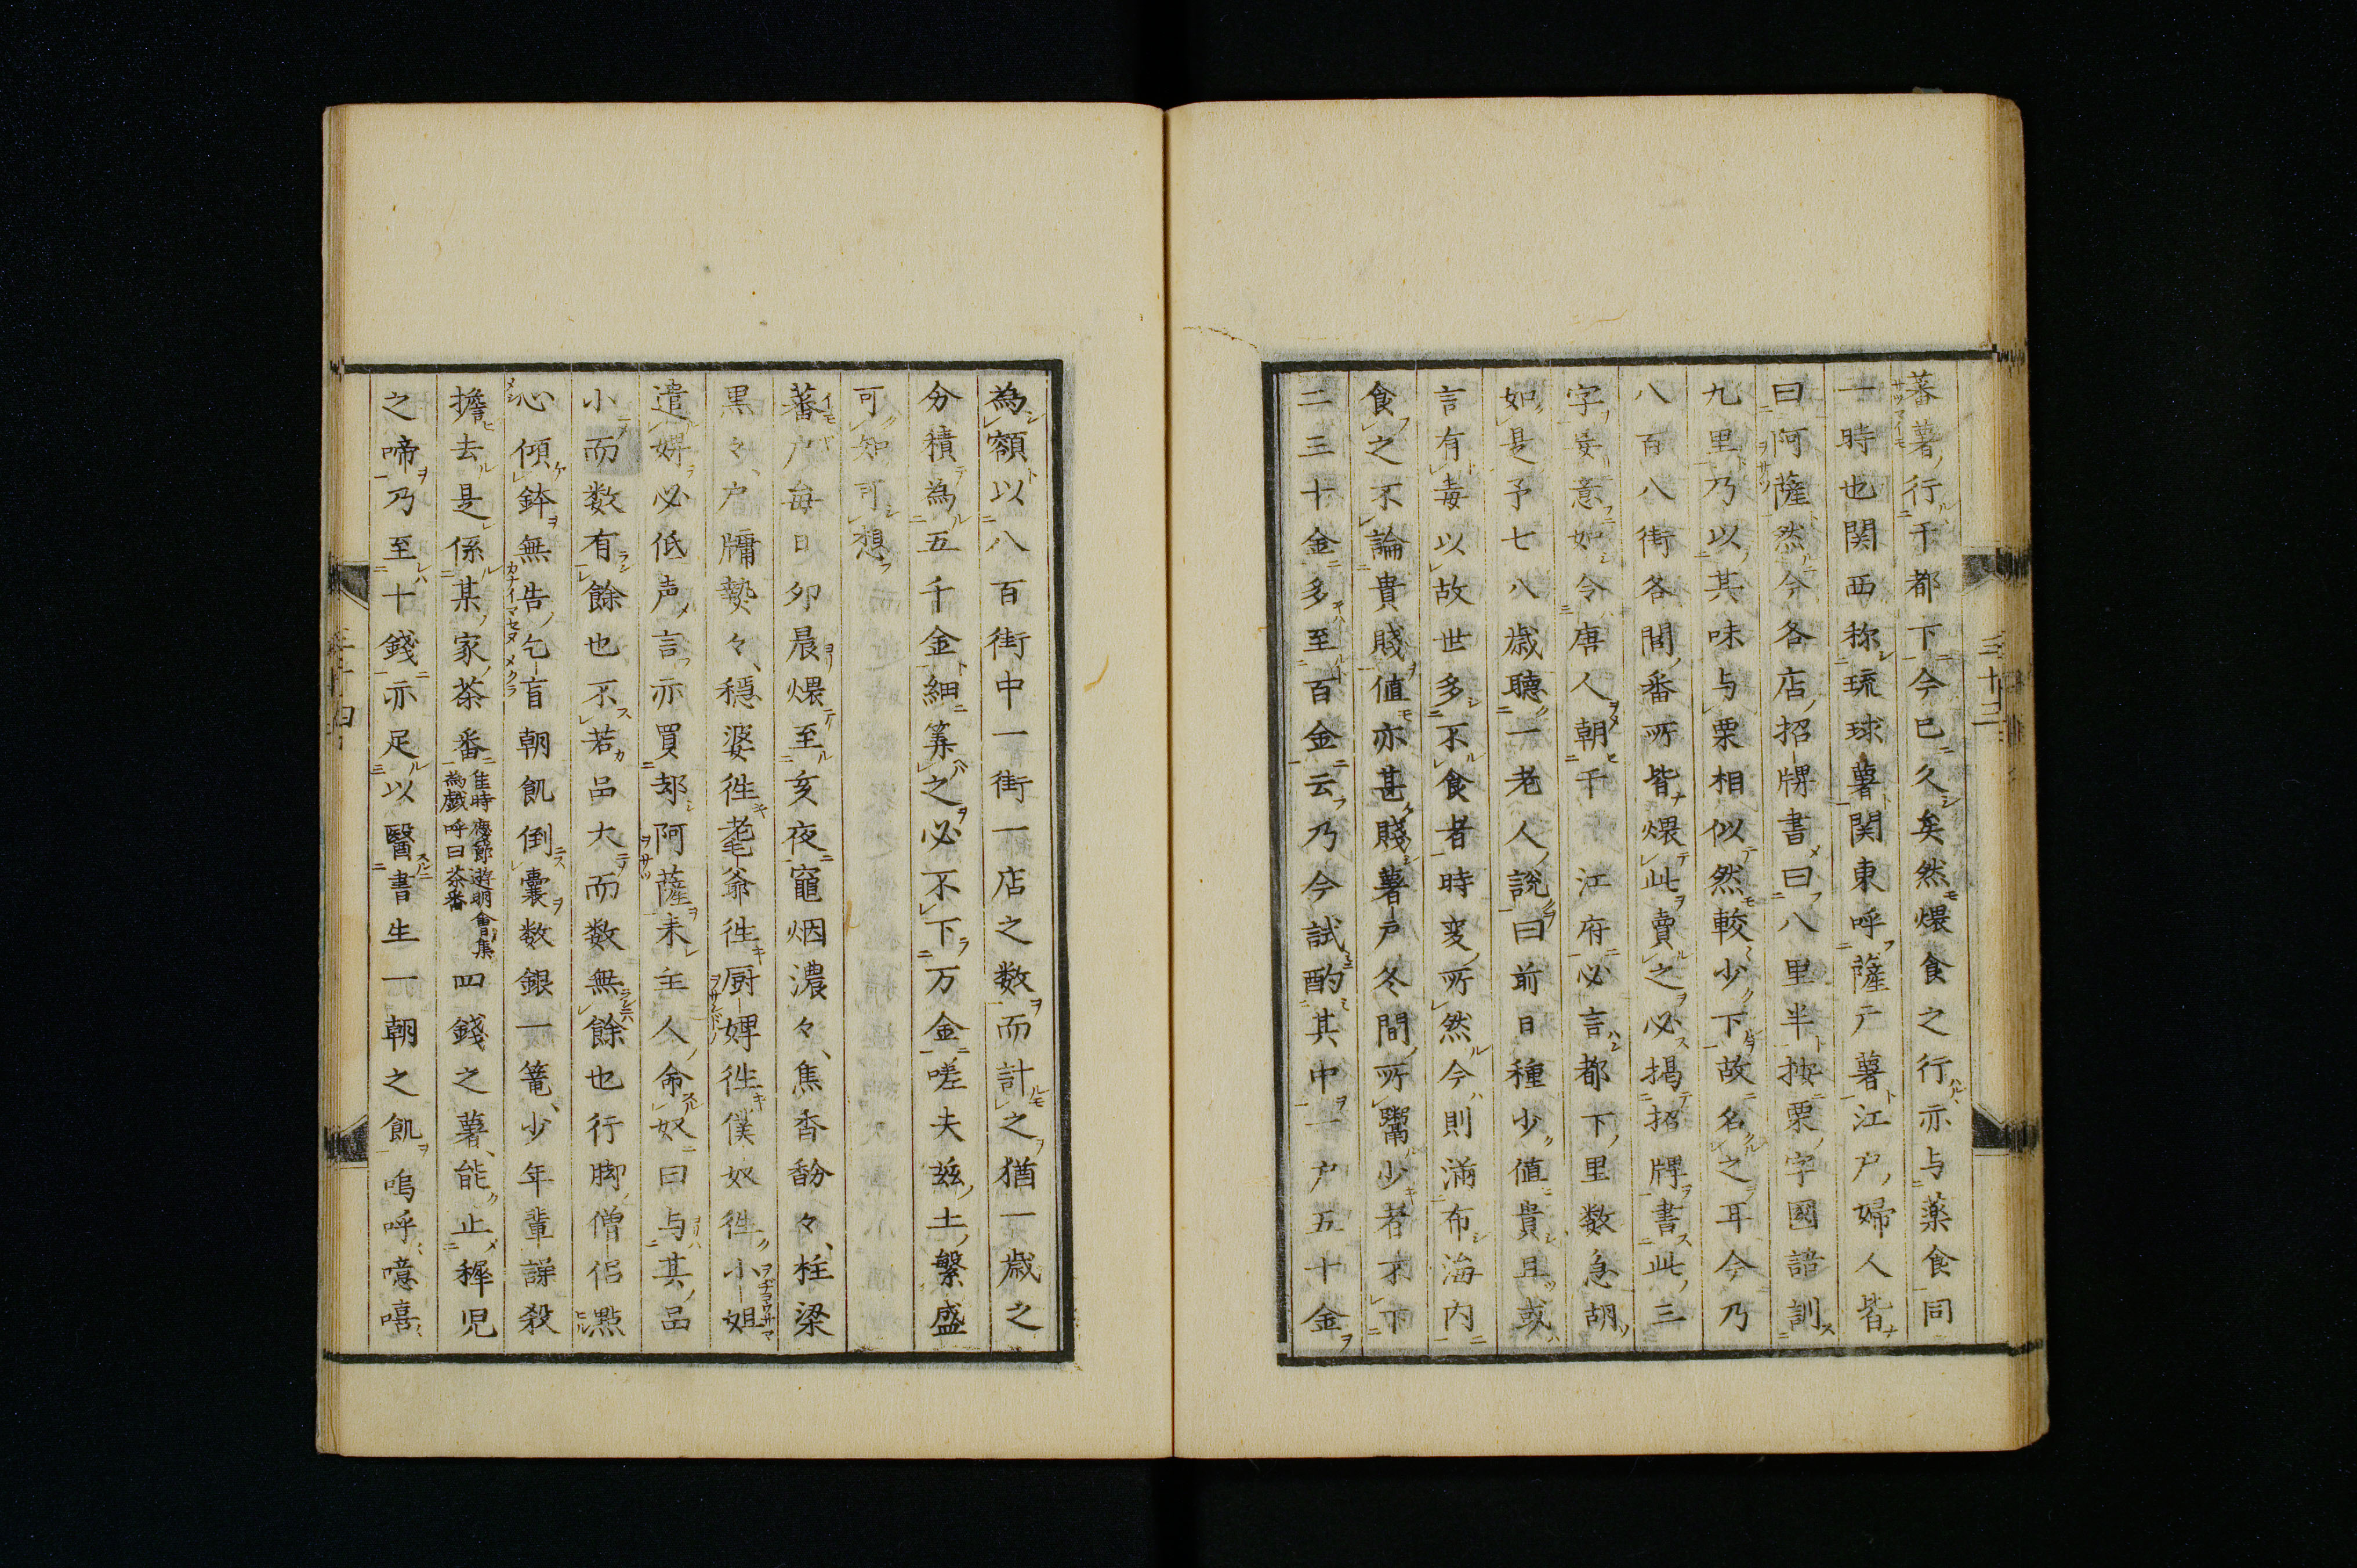 蕃薯行于都下今已久矣然煨食之行亦与薬食同
一時也関西称琉球薯関東呼薩广薯江戸婦人皆
曰阿薩然今各店招牌書曰八里半按栗字國語訓
九里乃以其味与栗相似然較少下故名之耳今乃
八百八街各閭番所皆煨此賣之必掲招牌書此三
字安意如令唐人朝于江府必言都下里数急胡
如是予七八歳聴一老人説曰前日種少値貴且或
言有毒以故世多不食者時変所然今則満布海内
食之不論貴賤値亦甚賤薯戸冬間所鬻少者不下
二三十金多至百金云乃今試酌其中一户五十金
三十三
為額以八百街中一街一店之数而計之猶一歳之
分積為五千金細筭之必不下万金嗟夫茲土繁盛
可知可想
蕃户毎日夘晨煨至亥夜竈烟濃々、焦香馚々、柱梁
黒々、户牗熱々、穏婆徃耄爺徃厨婢徃僕奴徃小姐
遣婢必低声言亦買却阿薩来主人命奴曰与其品
小而数有餘也不若品大而数無餘也行脚僧侶點
心傾鉢無告乞盲朝飢倒嚢数銀一篭、少年輩謎殺
擔去是係某家茶番佳時應節遊朋會集為戯呼曰茶番四錢之薯、能止穉児
之啼乃至十錢亦足以醫書生一朝之飢嗚呼噫嘻
三十四